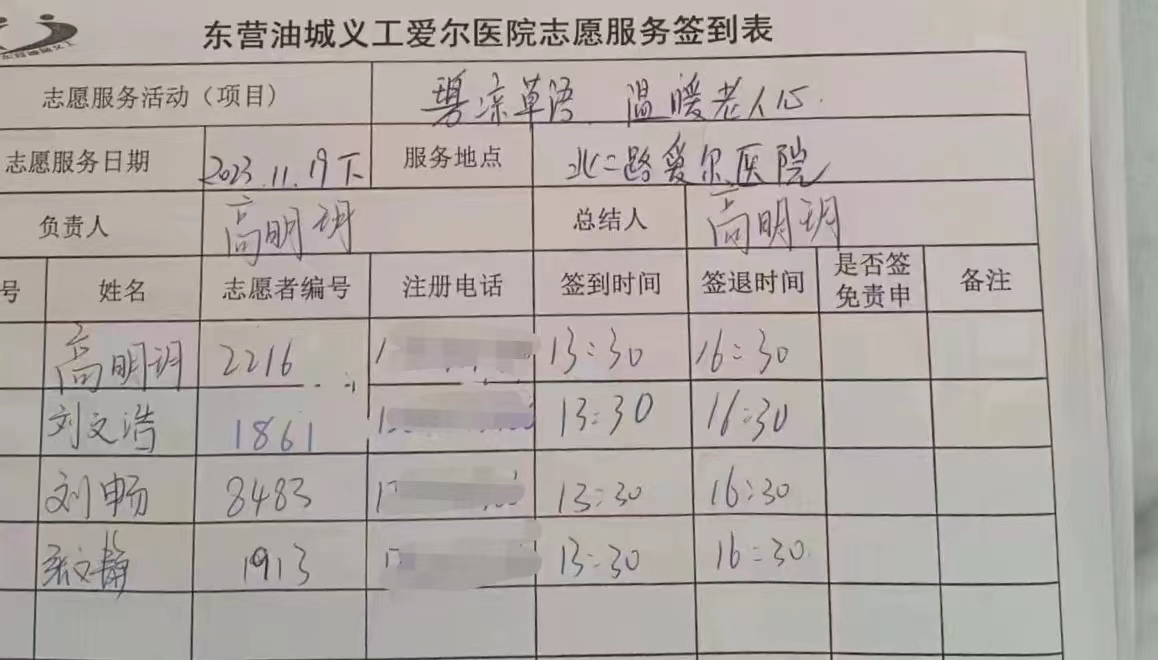 东营油城义工爱尔医院志愿服务签到表
志愿服务活动（项目） 碧凉草语 温暖老人心.
志愿服务日期 2023.11.19下 服务地点 北二路爱尔医院
负责人 高明玥 总结人 高明玥
号 姓名 志愿者编号 注册电话 签到时间 签退时间 是否签免责申 备注
高明玥 2216 1 13:30 16:30
刘文浩 1861 1 13:30 16:30
刘畅 8483 1 13:30 16:30
张文静 1913 1 13:30 16:30